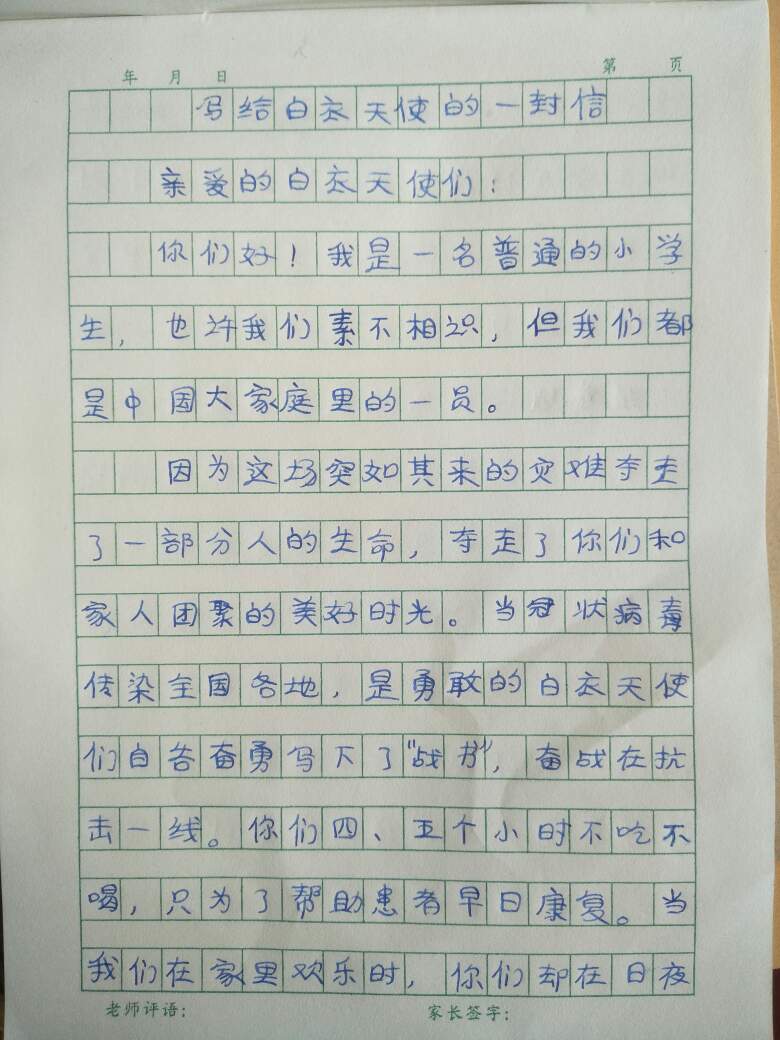 年 月 日 第 页
写给白衣天使的一封信
亲爱的白衣天使们：
你们好！我是一名普通的小学
生，也许我们素不相识，但我们都
是中国大家庭里的一员。
因为这场突如其来的灾难夺走
了一部分人的生命，夺走了你们和
家人团聚的美好时光。当冠状病毒
传染全国各地，是勇敢的白衣天使
们自告奋勇写下了“战书”，奋战在抗
击一线。你们四、五个小时不吃不
喝，只为了帮助患者早日康复。当
我们在家里欢乐时，你们却在日夜
老师评语： 家长签字：